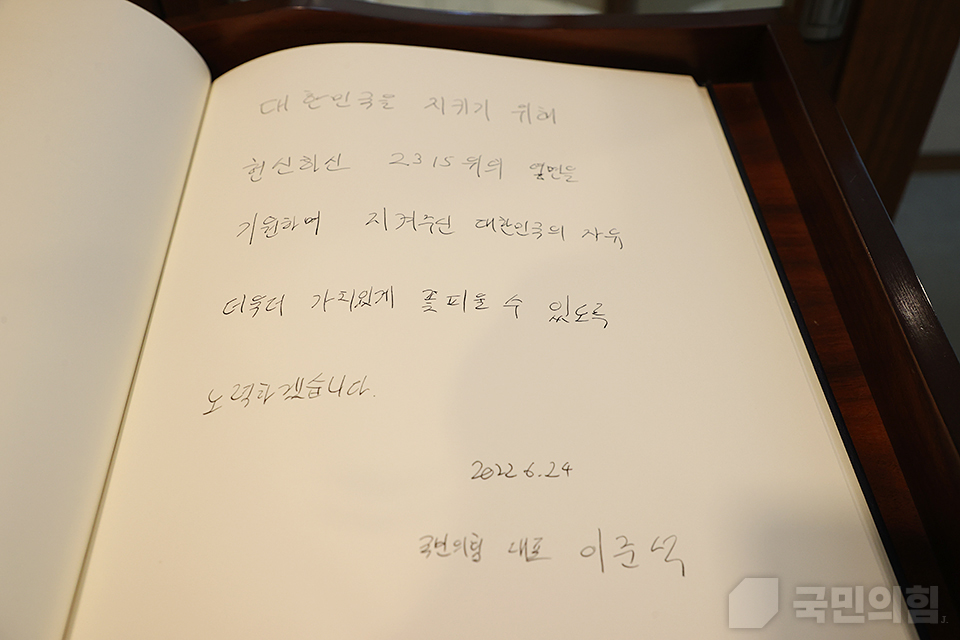 대한민국을 지키기 위해
헌신하신 2315위의 영면을
기원하며 지켜주신 대한민국의 자유
더욱더 가치있게 꽃피울 수 있도록
노력하겠습니다.
2022 6.24
국민의힘 대표 이준석
국민의힘